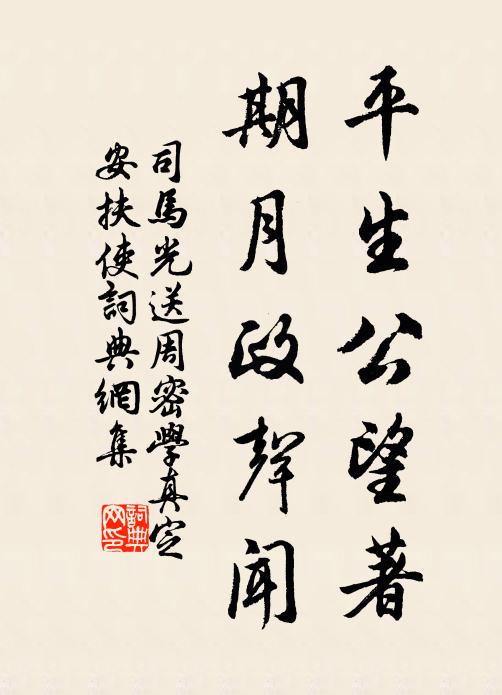 平生公望著
期月政聲聞
司馬光送周密學真定
安扶使詞典網集
詞典
网印